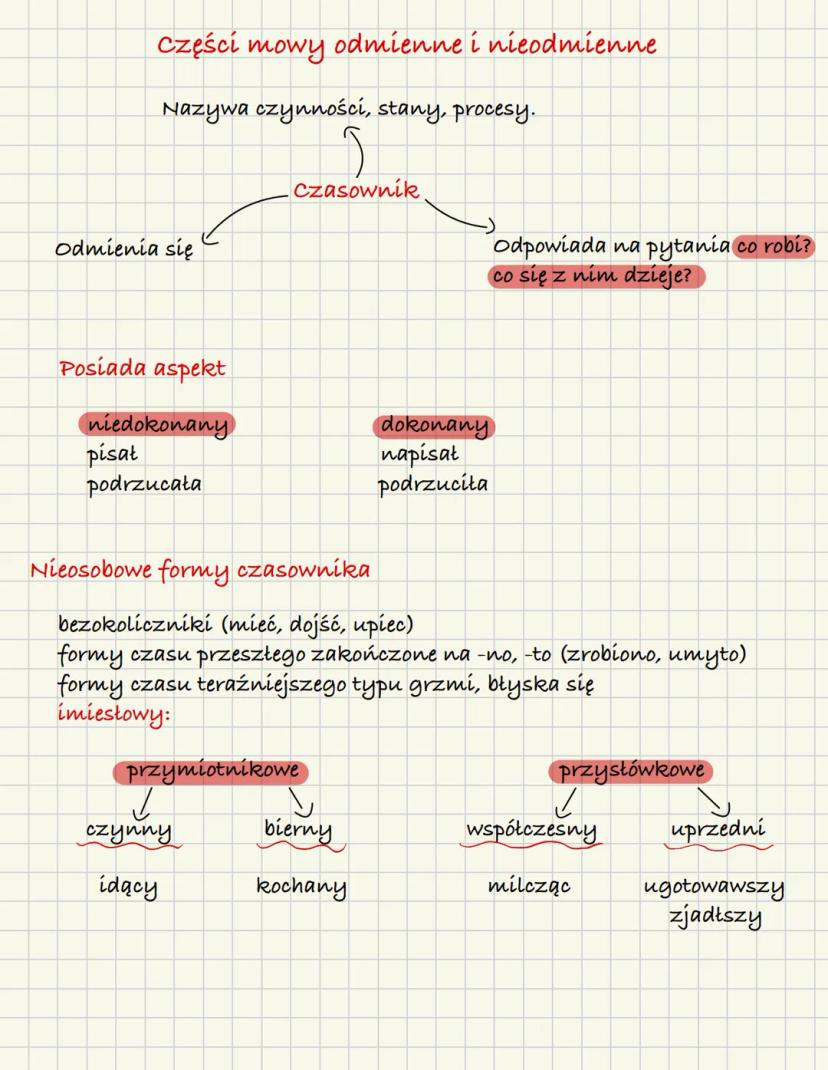 Części mowy odmienne i nieodmienne
Nazywa czynności, stany, procesy.
Czasownik
Odmienia się
Odpowiada na pytania co robi?
co się z nim dzieje?
Posiada aspekt
niedokonany
dokonany
pisał
napisał
podrzucała
podrzuciła
Nieosobowe formy czasownika
bezokoliczniki (mieć, dojść, upiec)
formy czasu przeszłego zakończone na -no, -to (zrobiono, umyto)
formy czasu teraźniejszego typu grzmi, błyska się
imiesłowy:
przymiotnikowe
przysłówkowe
czynny
bierny
współczesny
uprzedni
idący
kochany
milcząc
ugotowawszy
zjadłszy